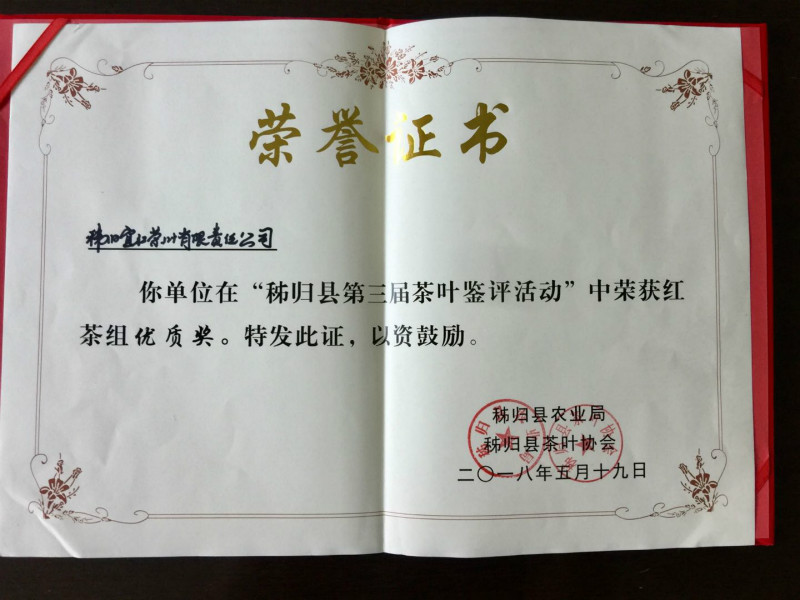 荣誉证书
秭归宜红茶业有限责任公司
你单位在“秭归县第三届茶叶鉴评活动”中荣获红
茶组优质奖。特发此证，以资鼓励。
秭归县农业局
秭归县茶叶协会
二〇一八年五月十九日